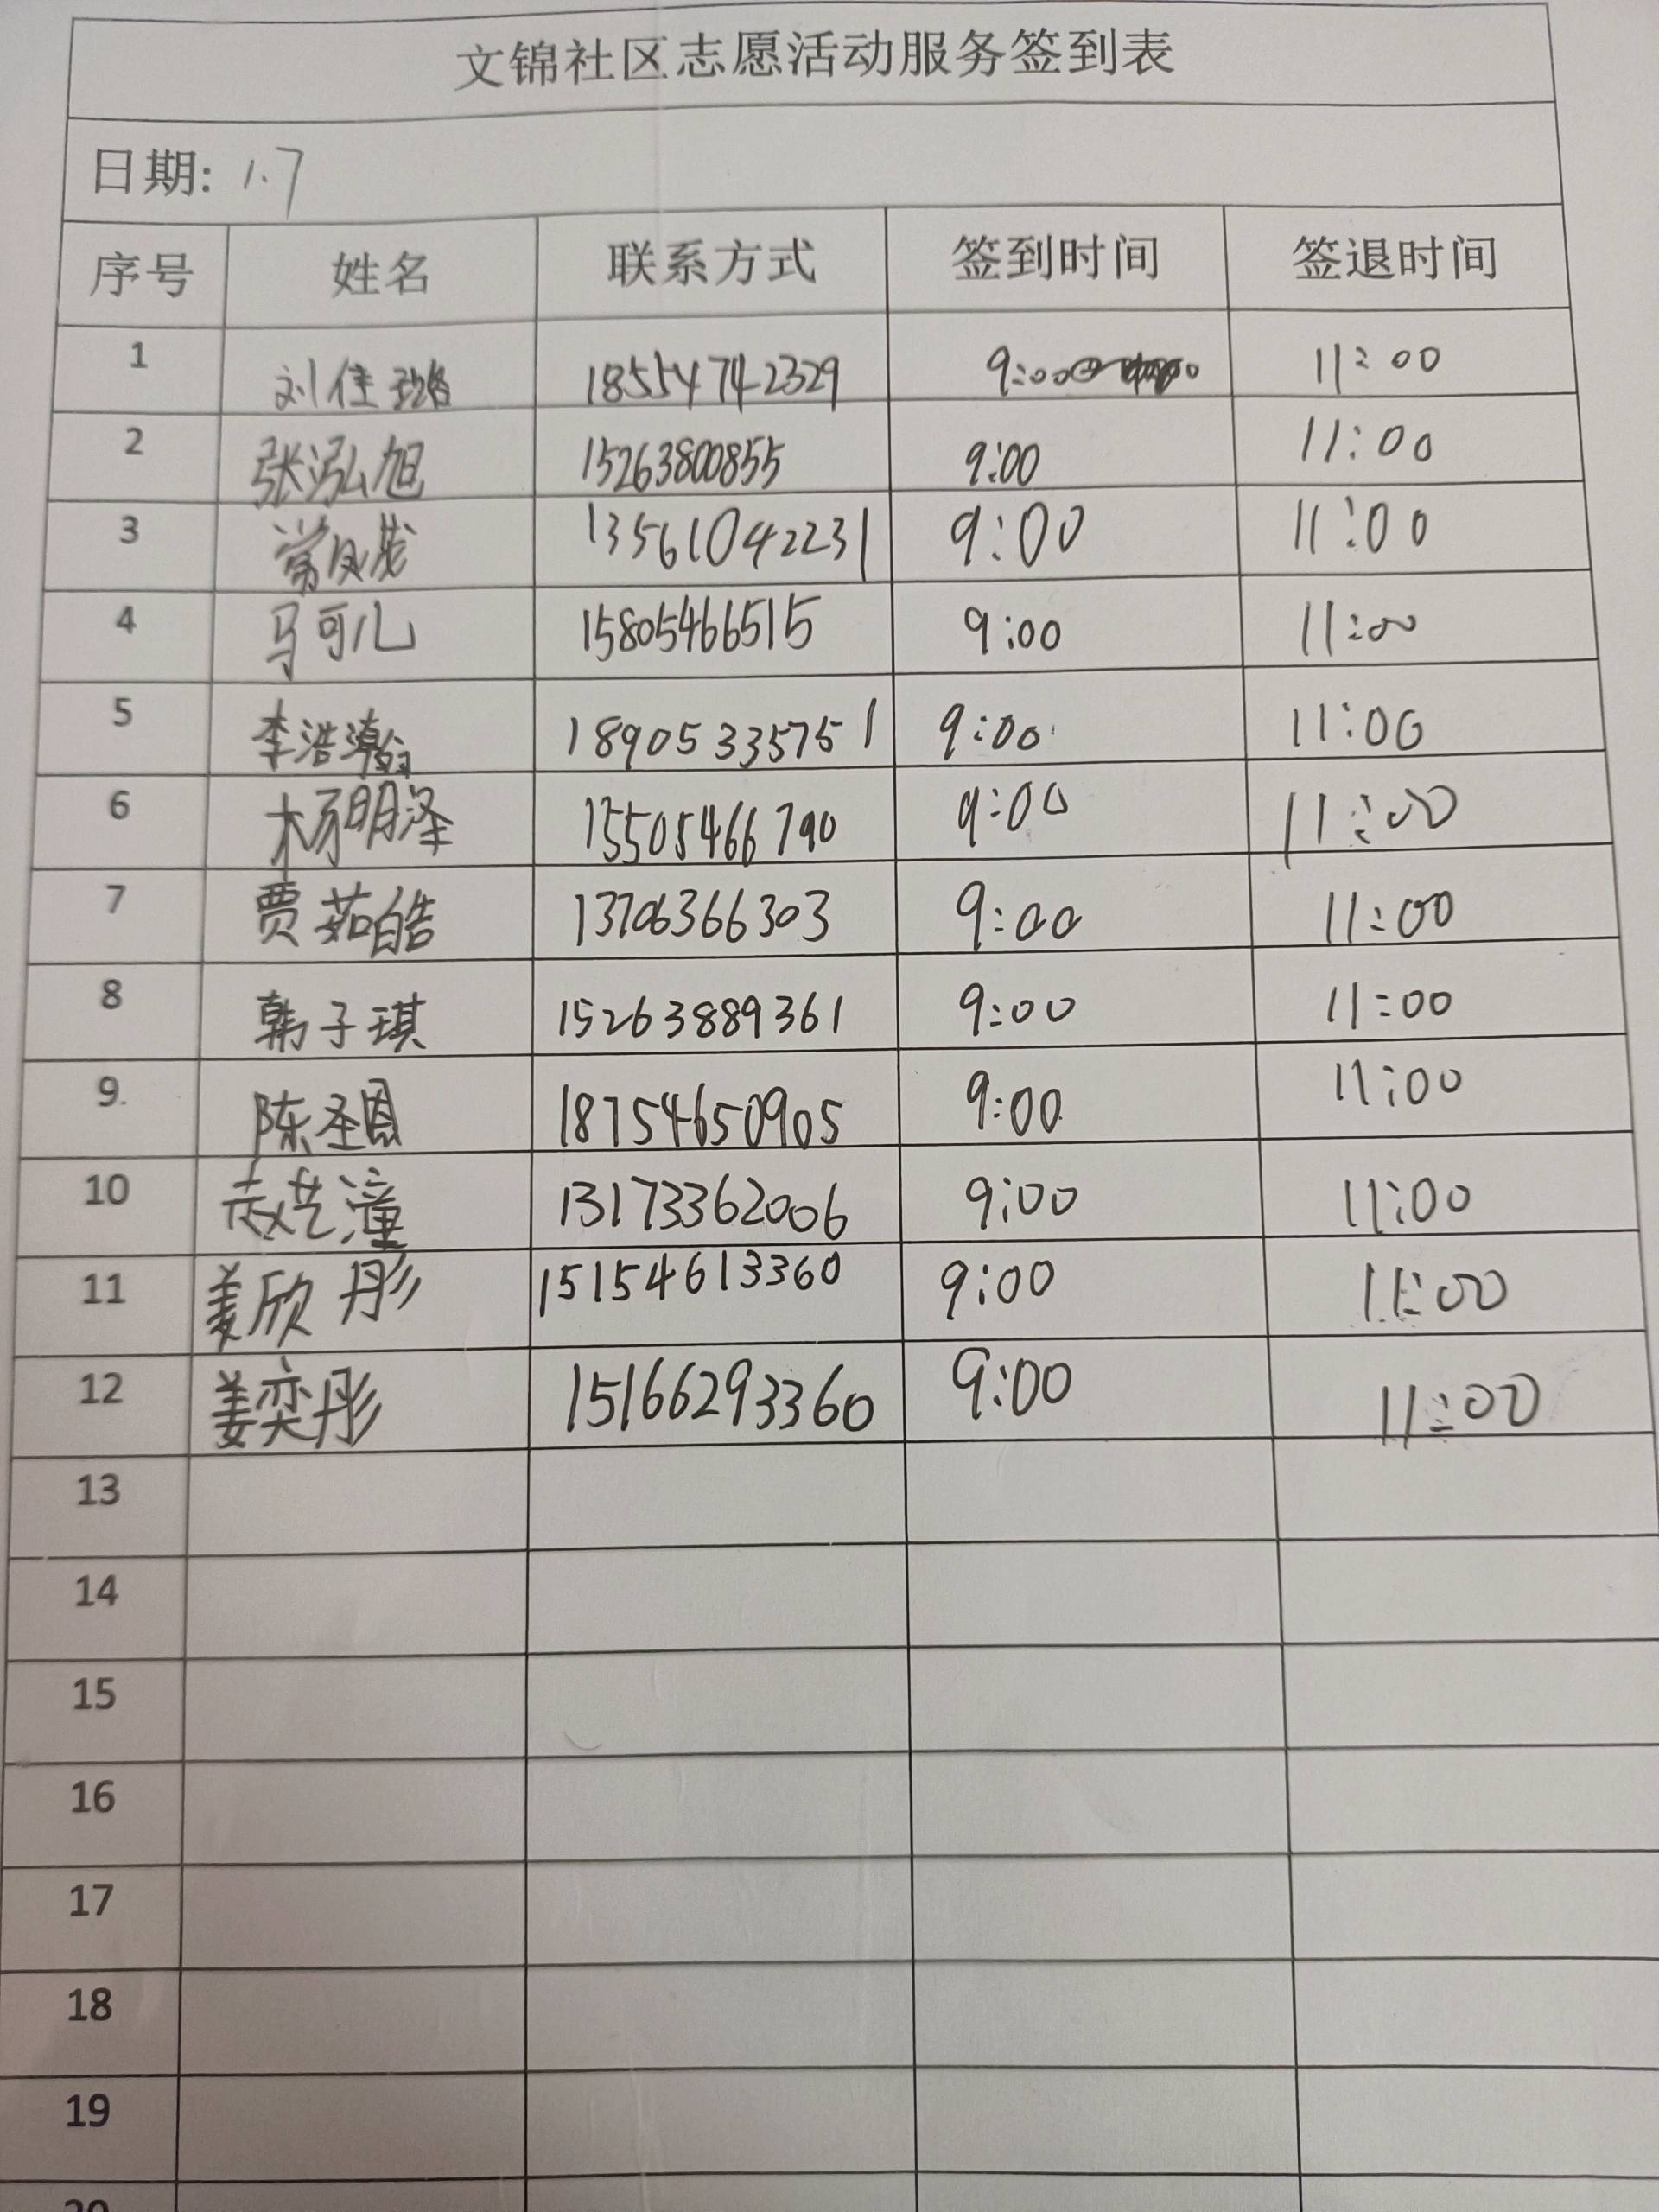 文锦社区志愿活动服务签到表
日期: 1.7
序号 姓名 联系方式 签到时间 签退时间
1 刘佳璐 18554742329 9:00 11:00
2 张泓旭 15263800855 9:00 11:00
3 13561042231 9:00 11:00
4 马可儿 15805466515 9:00 11:00
5 李浩瀚 18905335751 9:00 11:00
6 杨明泽 15505466790 9:00 11:00
7 贾茹皓 13706366303 9:00 11:00
8 韩子琪 15263889361 9:00 11:00
9 陈圣恩 18754650905 9:00 11:00
10 赵艺潼 13173362006 9:00 11:00
11 姜欣彤 15154613360 9:00 11:00
12 姜奕彤 15166293360 9:00 11:00
13
14
15
16
17
18
19
20